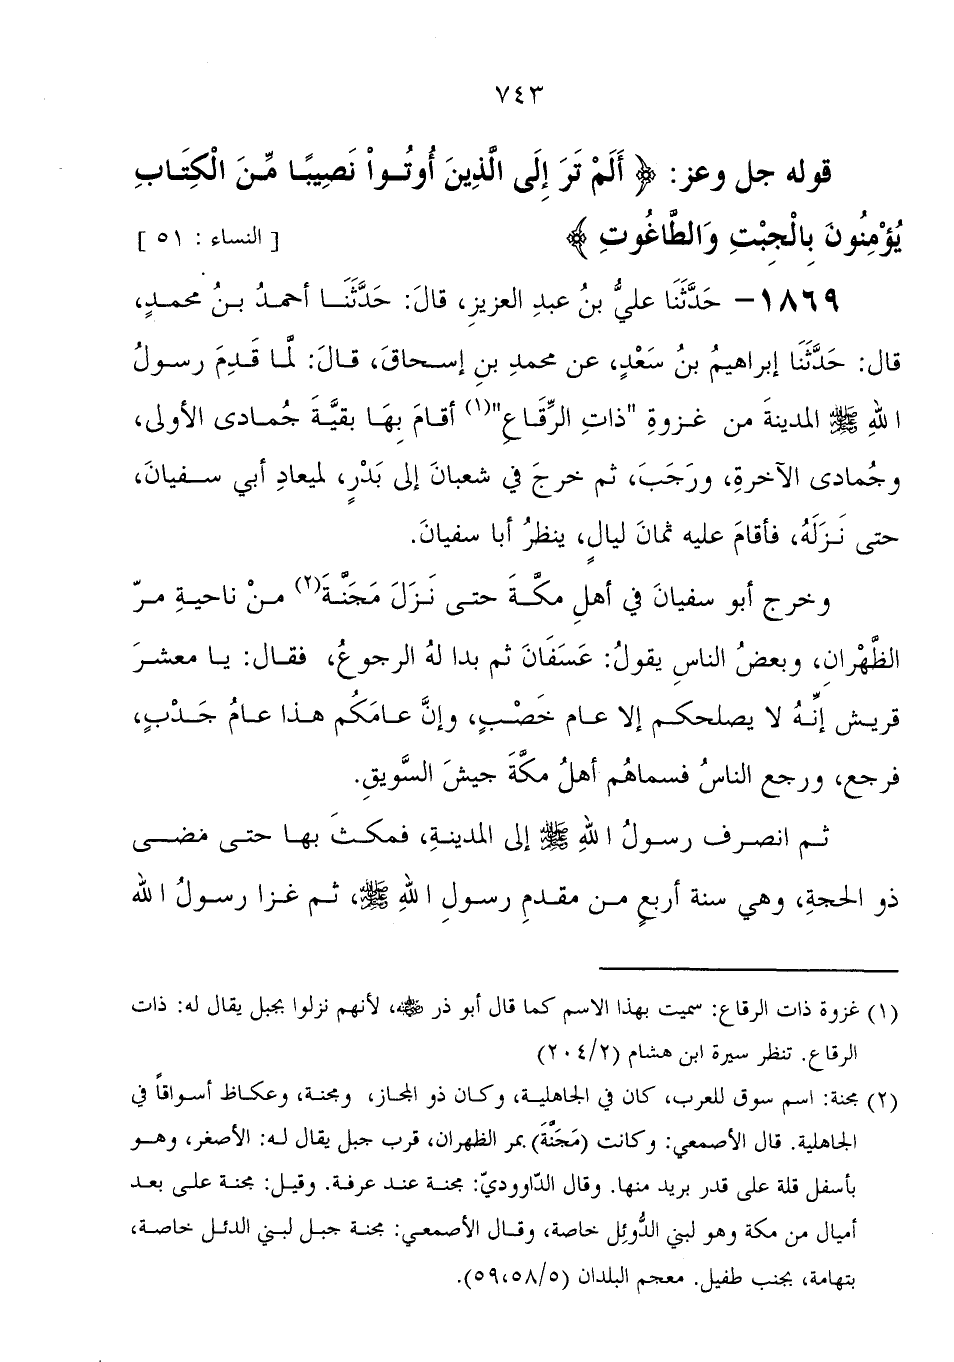 ٧٤٣
قوله جل وعز: ﴿ أَلَمْ تَرَ إِلَى الَّذِينَ أُوتُواْ نَصِيبًا مِّنَ الْكِتَابِ
يُؤْمِنُونَ بِالْجِبْتِ وَالطَّاغُوتِ ﴾ [ النساء : ٥١ ]
١٨٦٩- حَدَّثَنَا عليُّ بنُ عبدِ العزيزِ، قالَ: حَدَّثَنَا أحمدُ بنُ محمدٍ،
قال: حَدَّثَنَا إبراهيمُ بنُ سَعْدٍ، عن محمدِ بنِ إسحاقَ، قالَ: لَّما قَدِمَ رسولُ
اللهِ ﷺ المدينةَ من غزوةِ "ذاتِ الرِّقَاعِ"(١) أقامَ بِهَا بقيَّةَ جُمادى الأولى،
وجُمادى الآخرةِ، ورَجَبَ، ثم خرجَ في شعبانَ إلى بَدْرٍ، لميعادِ أبي سفيانَ،
حتى نَزَلَهُ، فأقامَ عليه ثمانَ ليالٍ، ينظرُ أبا سفيانَ.
وخرج أبو سفيانَ في أهلِ مكَّةَ حتى نَزَلَ مَجَنَّةَ(٢) منْ ناحيةِ مرِّ
الظَّهْرانِ، وبعضُ الناسِ يقولُ: عَسَفَانَ ثم بدا لهُ الرجوعُ، فقال: يا معشرَ
قريش إنَّهُ لا يصلحكم إلا عام خَصْبٍ، وإنَّ عامَكُم هذا عامُ جَدْبٍ،
فرجع، ورجع الناسُ فسماهُم أهلُ مكَّةَ جيشَ السَّويقِ.
ثم انصرف رسولُ اللهِ ﷺ إلى المدينةِ، فمكثَ بها حتى مضى
ذو الحجةِ، وهي سنة أربعٍ من مقدمِ رسولِ اللهِ ﷺ، ثم غزا رسولُ الله
(١) غزوة ذات الرقاع: سميت بهذا الاسم كما قال أبو ذر ﷺ، لأنهم نزلوا بجبل يقال له: ذات
الرقاع. تنظر سيرة ابن هشام (٢٠٤/٢)
(٢) مجنة: اسم سوق للعرب، كان في الجاهلية، وكان ذو المجاز، ومجنة، وعكاظ أسواقاً في
الجاهلية. قال الأصمعي: وكانت (مَجَنَّةَ) بمر الظهران، قرب جبل يقال له: الأصغر، وهو
بأسفل قلة على قدر بريد منها. وقال الدّاووديّ: مجنة عند عرفة. وقيل: مجنة على بعد
أميال من مكة وهو لبني الدُّوئِل خاصة، وقال الأصمعي: مجنة جبل لبني الدئل خاصة،
بتهامة، بجنب طفيل. معجم البلدان (٥٩،٥٨/٥).